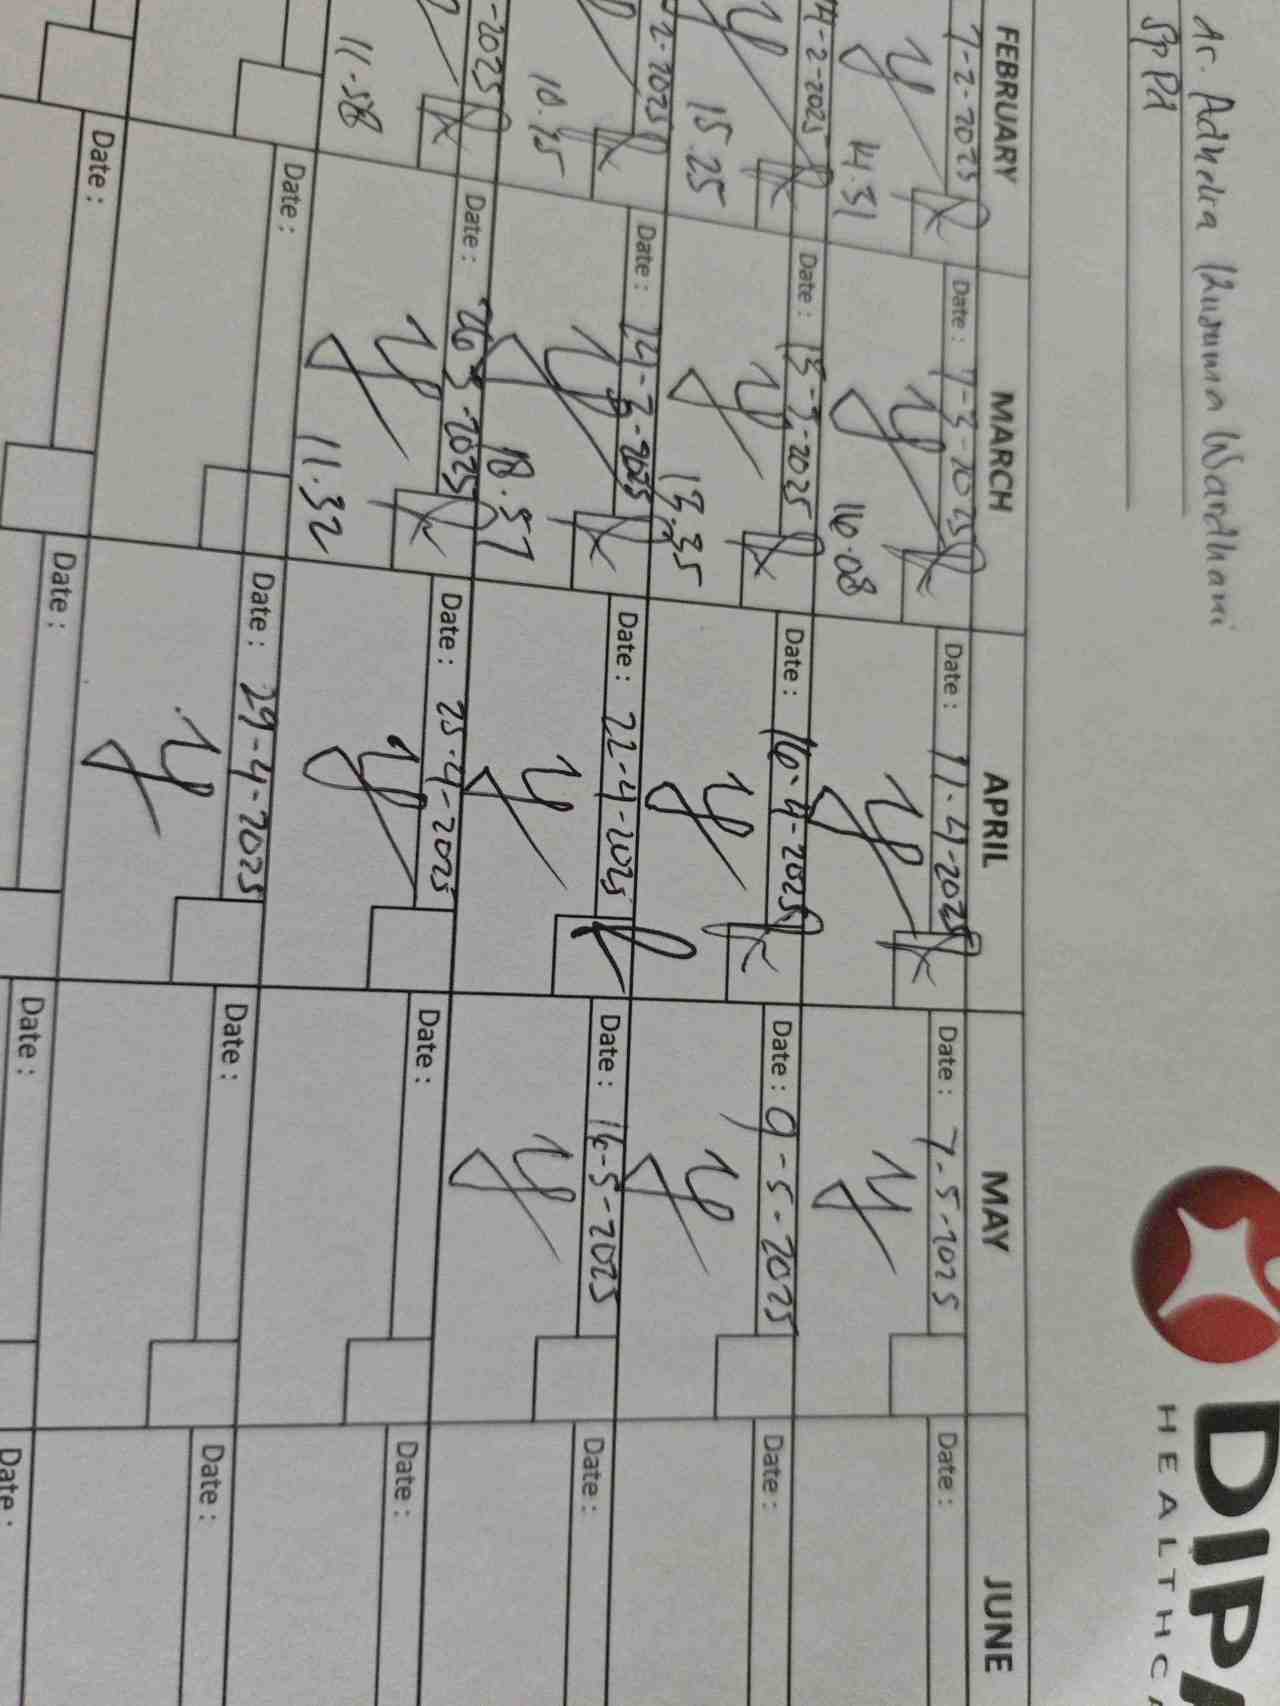 dr. Adhelia Kusuma Wardhani
Sp Pd
DIPA
HEALTHCA
FEBRUARY MARCH APRIL MAY JUNE
7-2-2025 Date : 7-3-2025 Date : 11-4-2025 Date : 7-5-2025 Date :
14.31 16.08
14-2-2025 Date : 13-3-2025 Date : 16-4-2025 Date : 9-5-2025 Date :
15.25 13.35
2-2025 Date : Date : 22-4-2025 Date : 16-5-2025 Date :
18.57
-2025 Date : 26-3-2025 Date : 25-4-2025 Date : Date :
11-58 11.32
Date : Date : 29-4-2025 Date : Date :
Date : Date : Date : Date :